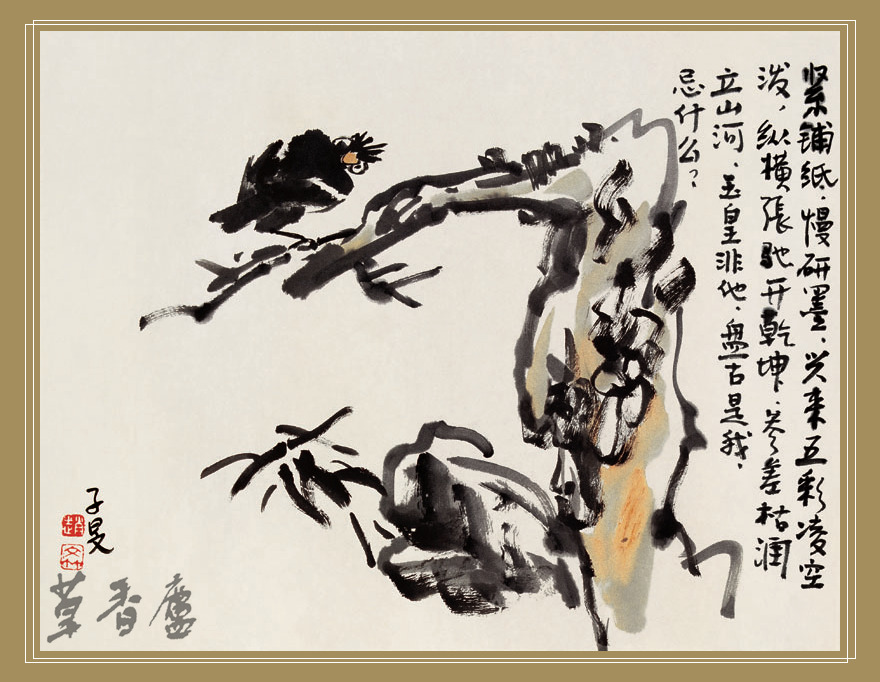 紧铺纸，慢研墨，兴来五彩凌空
泼，纵横張驰开乾坤，参差枯润
立山河，玉皇非他，盘古是我，
忌什么？
子旻
草香廬